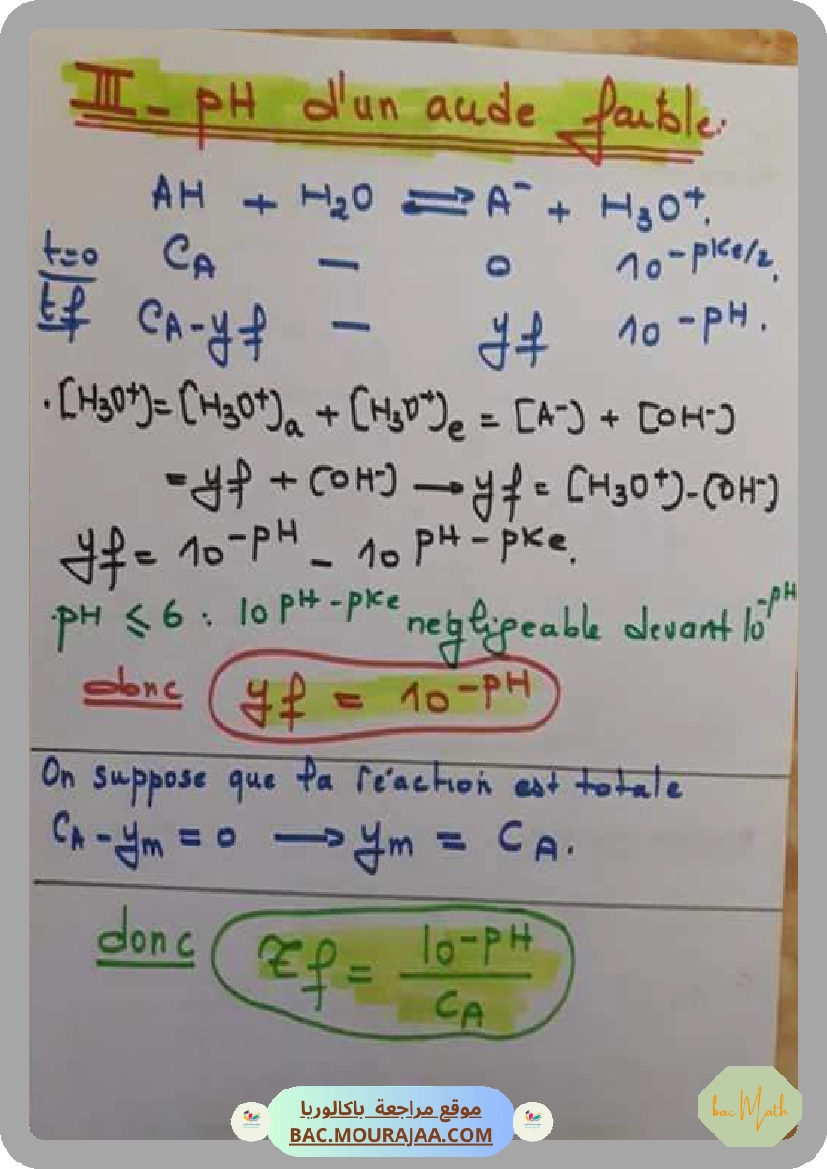 III - pH d'un acide faible.
AH + H₂O ⇌ A⁻ + H₃O⁺.
t=0 C_A — 0 10^-pKe/2.
tf C_A-yf — yf 10^-pH.
. [H₃O⁺]=[H₃O⁺]a + [H₃O⁺]e = [A⁻] + [OH⁻]
= yf + [OH⁻] → yf = [H₃O⁺]-[OH⁻]
yf = 10^-pH - 10^pH-pKe.
.pH ⩽ 6 : 10^pH-pKe negligeable devant 10^-pH
donc yf = 10^-pH
On suppose que la réaction est totale
C_A - ym = 0 → ym = C_A.
donc τf = 10^-pH / C_A
موقع مراجعة باكالوريا
BAC.MOURAJAA.COM
bac Math